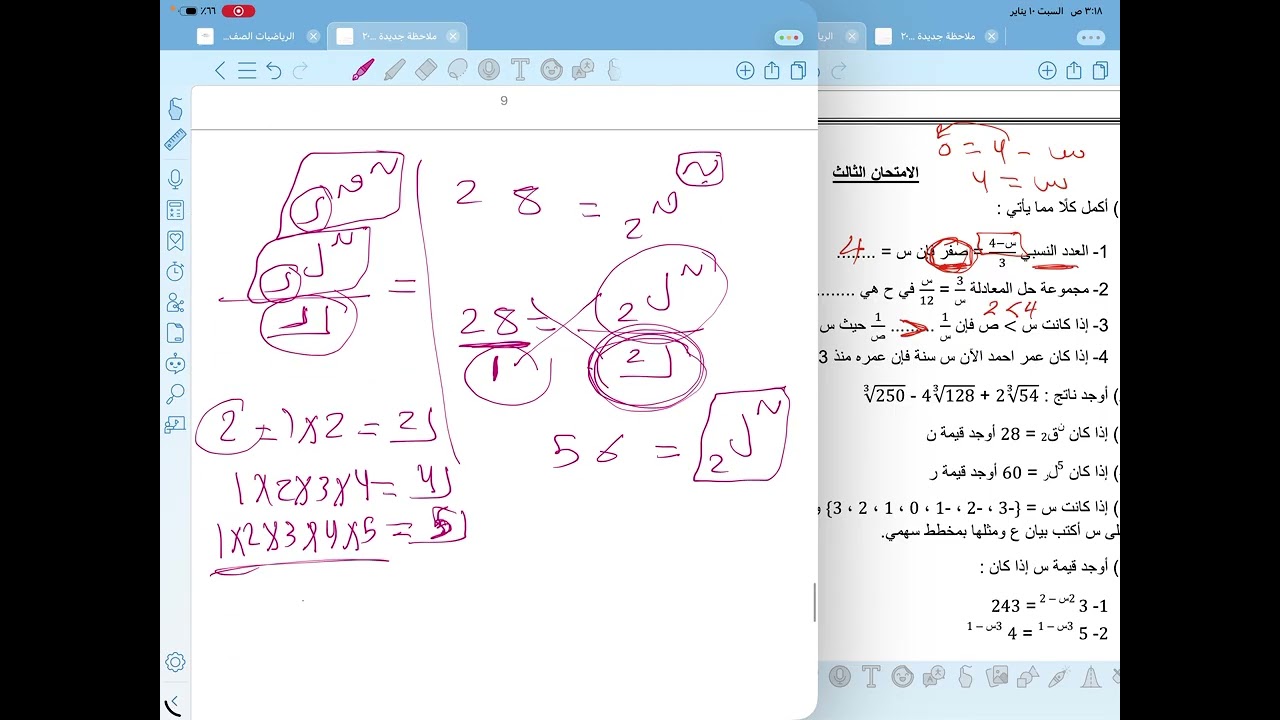 ٣:١٨ ص السبت ١٠ يناير
٦٦٪
ملاحظة جديدة ...٢٠
الرياضيات الصف...
الريا
ملاحظة جديدة ...٢٠
9
ن ق ر
ن ل ر
ر
=
28 = ن ق 2
28 = ن ل 2
1
2
56 = ن ل 2
2 = 1×2 = 2
1×2×3×4 = 4
1×2×3×4×5 = 5
س - 4 = 0
س = 4
الامتحان الثالث
) أكمل كلًا مما يأتي :
1- العدد النسبي س-4/3 = صفر فإن س = ........ 4
2- مجموعة حل المعادلة 3/س = س/12 في ح هي ........
2 < 4
3- إذا كانت س > ص فإن 1/س ........ 1/ص حيث س
4- إذا كان عمر احمد الآن س سنة فإن عمره منذ 3
) أوجد ناتج : ∛250 - 4∛128 + 2∛54
) إذا كان ن ق2 = 28 أوجد قيمة ن
) إذا كان 5 ل ر = 60 أوجد قيمة ر
) إذا كانت س = {-3 ، -2 ، -1 ، 0 ، 1 ، 2 ، 3} و
لى س أكتب بيان ع ومثلها بمخطط سهمي.
) أوجد قيمة س إذا كان :
1- 3 2س – 2 = 243
2- 5 3س – 1 = 4 3س – 1